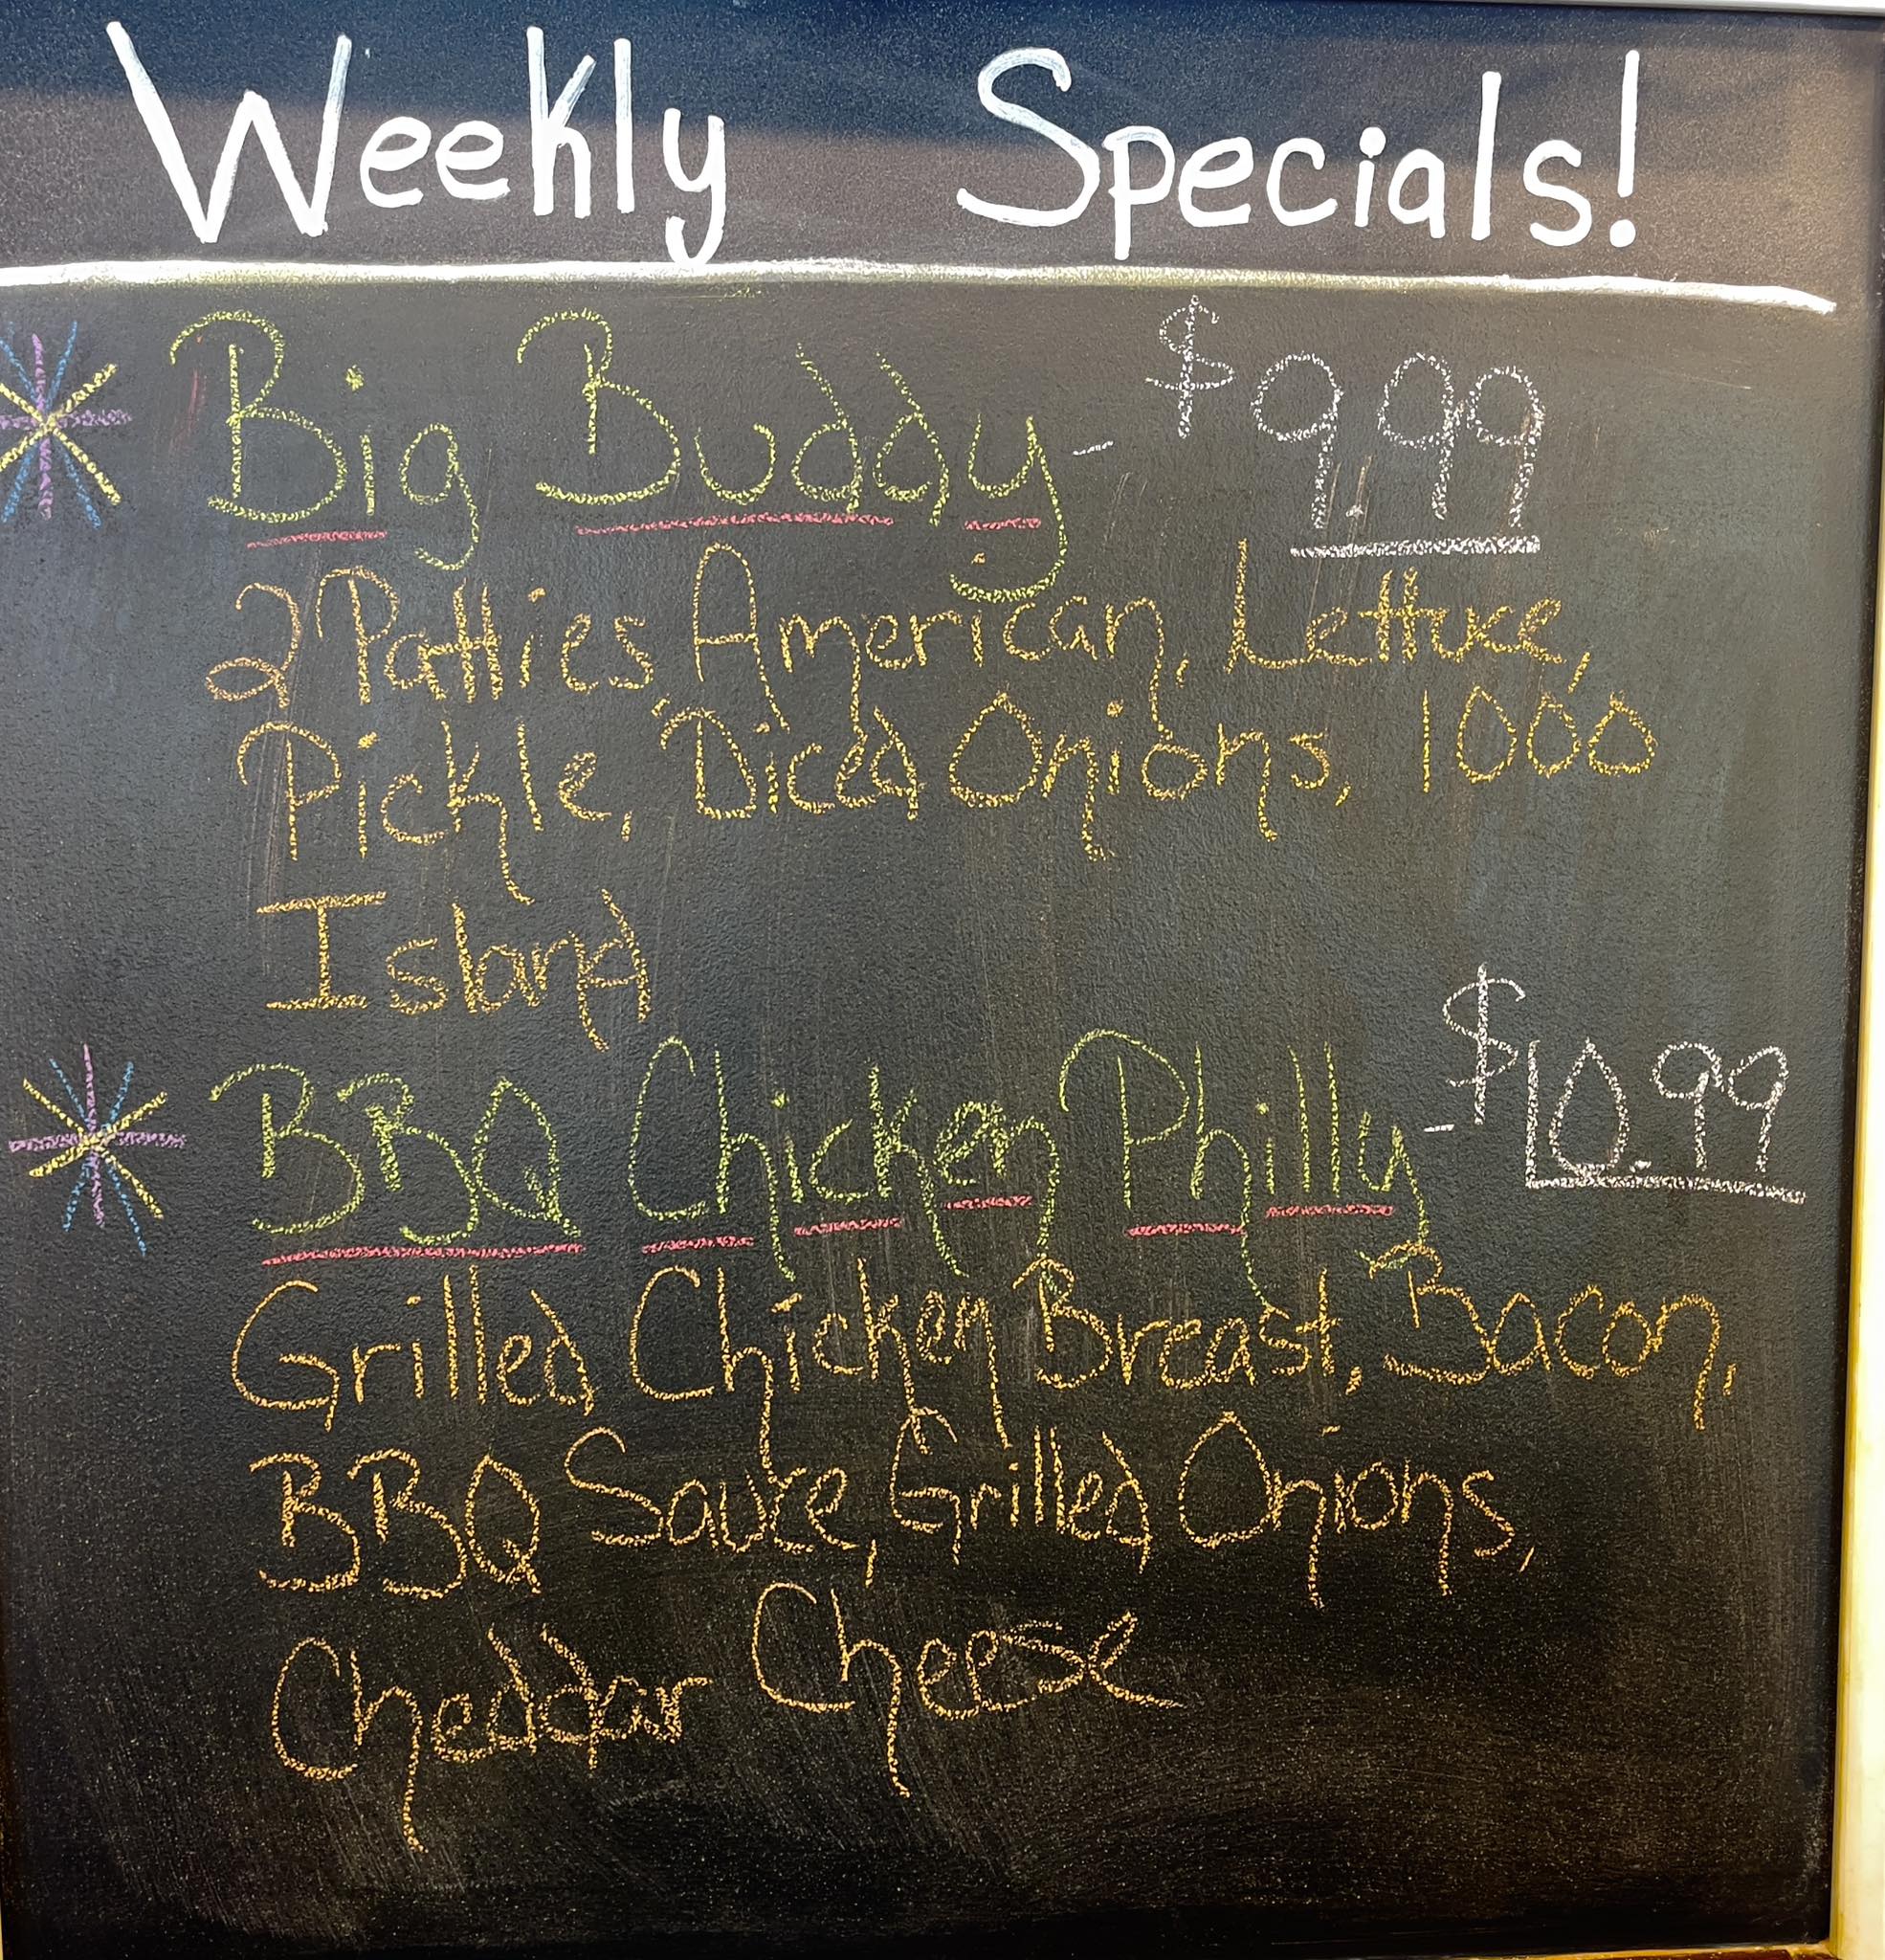 Weekly Specials!
Big Buddy - $9.99
2 Patties, American, Lettuce,
Pickle, Diced Onions, 1000
Island
BBQ Chicken Philly - $10.99
Grilled Chicken Breast, Bacon,
BBQ Sauce, Grilled Onions,
Cheddar Cheese